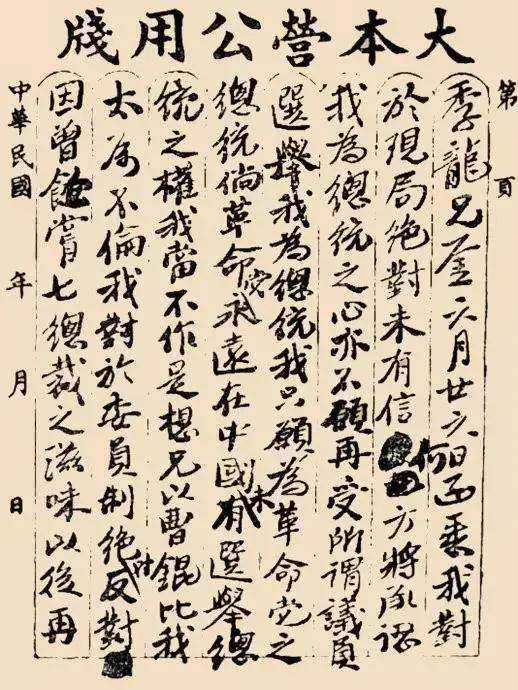 大本營公用牋
第 頁
季龍兄鑒六月廿六日函我對
於現局絕對未有信何方將承認
我為總統之心亦不願再受所謂議員
選舉我為總統我只願為革命党之
總統倘革命党永遠在中國未有選舉總
統之權我當不作是想兄以曹錕比我
太為不倫我對於委員制絕对反對
因曾飽嘗七總裁之滋味以後再
中華民國 年 月 日